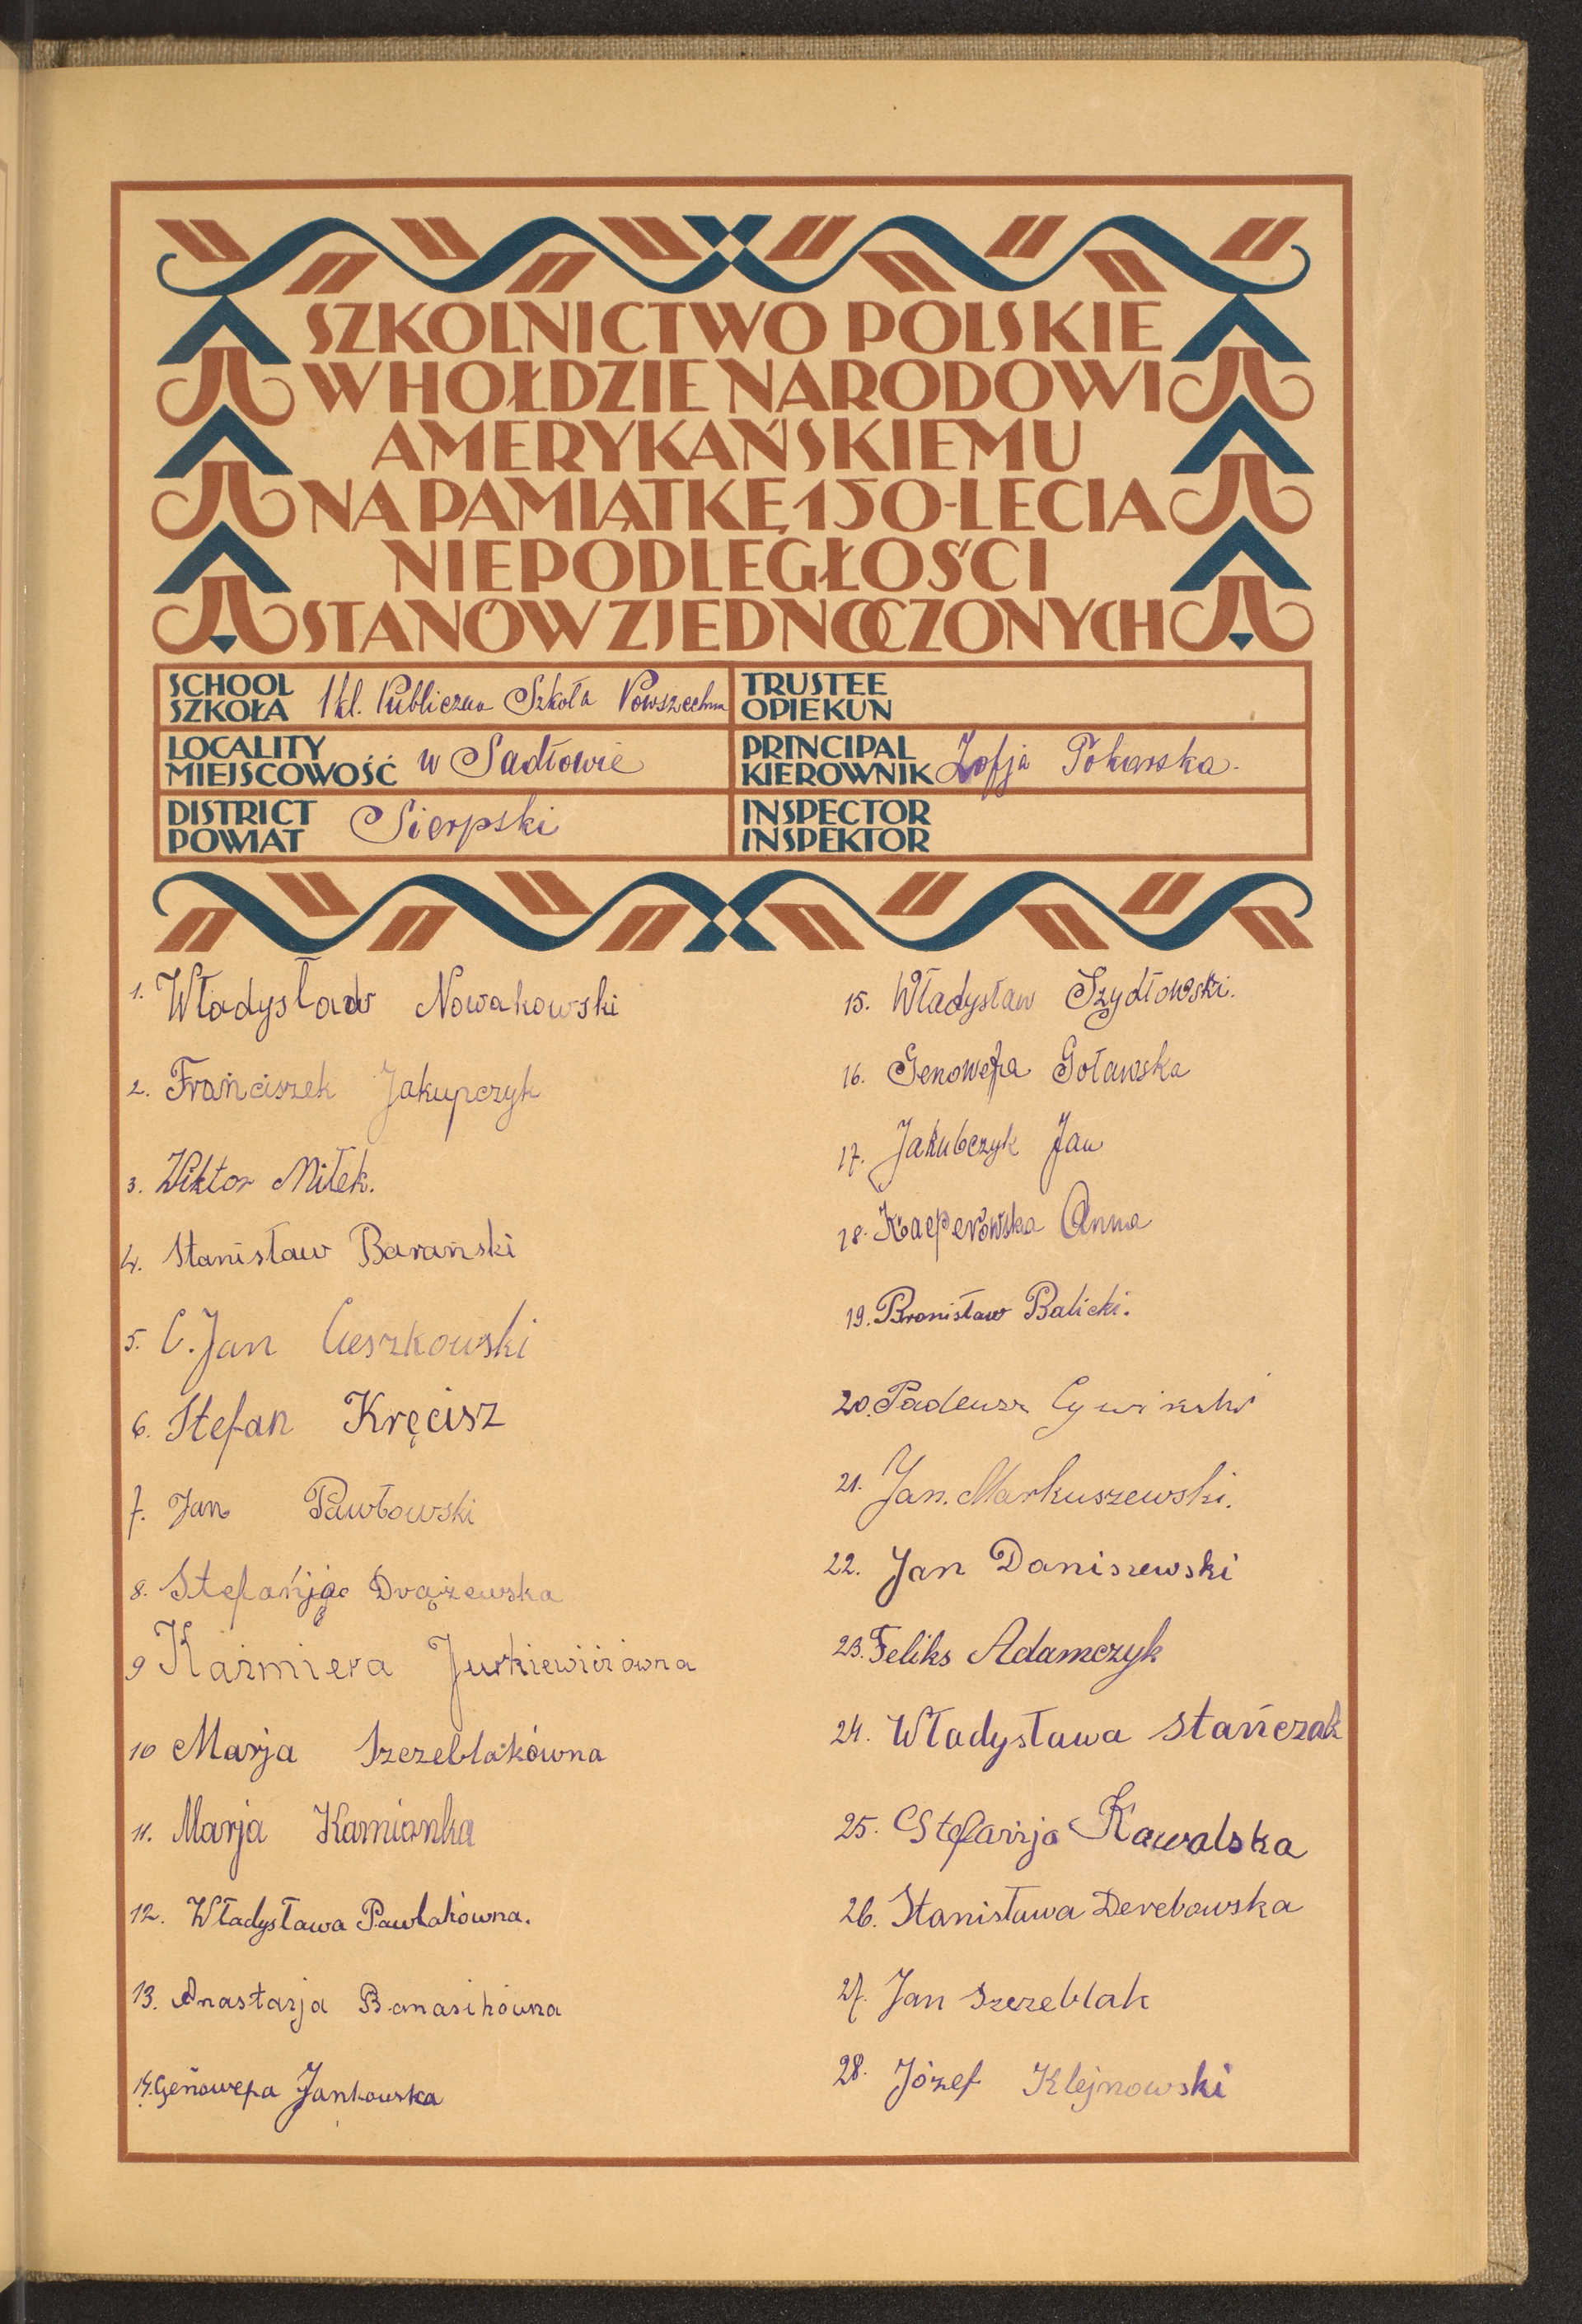 SZKOLNICTWO POLSKIE
W HOŁDZIE NARODOWI
AMERYKAŃSKIEMU
NA PAMIĄTKĘ 150-LECIA
NIEPODLEGŁOŚCI
STANÓW ZJEDNOCZONYCH
SCHOOL
SZKOŁA
1 kl. Publiczna Szkoła Powszechna
TRUSTEE
OPIEKUN
LOCALITY
MIEJSCOWOŚĆ
w Sadłowie
PRINCIPAL
KIEROWNIK
Zofja Pokorska.
DISTRICT
POWIAT
Sierpski
INSPECTOR
INSPEKTOR
1. Władysław Nowakowski
2. Franciszek Jakupczyk
3. Wiktor Miłek.
4. Stanisław Barański
5. C. Jan Cieszkowski
6. Stefan Kręcisz
7. Jan Pawłowski
8. Stefanja Drążewska
9 Kaźmiera Jurkiewiczówna
10 Marja Szczeblakówna
11. Marja Kamionka
12. Władysława Pawlakówna.
13. Anastazja Banasikówna
14. Genowefa Jankowska
15. Władysław Szydłowski.
16. Genowefa Goławska
17. Jakubczyk Jan
18. Kacperowska Anna
19. Bronisław Balicki.
20. Tadeusz Cywiński
21. Jan. Markuszewski.
22. Jan Daniszewski
23. Feliks Adamczyk
24. Władysława Stańczak
25. Stefanja Kawalska
26. Stanisława Derebowska
27. Jan Szczeblak
28. Józef Klejnowski